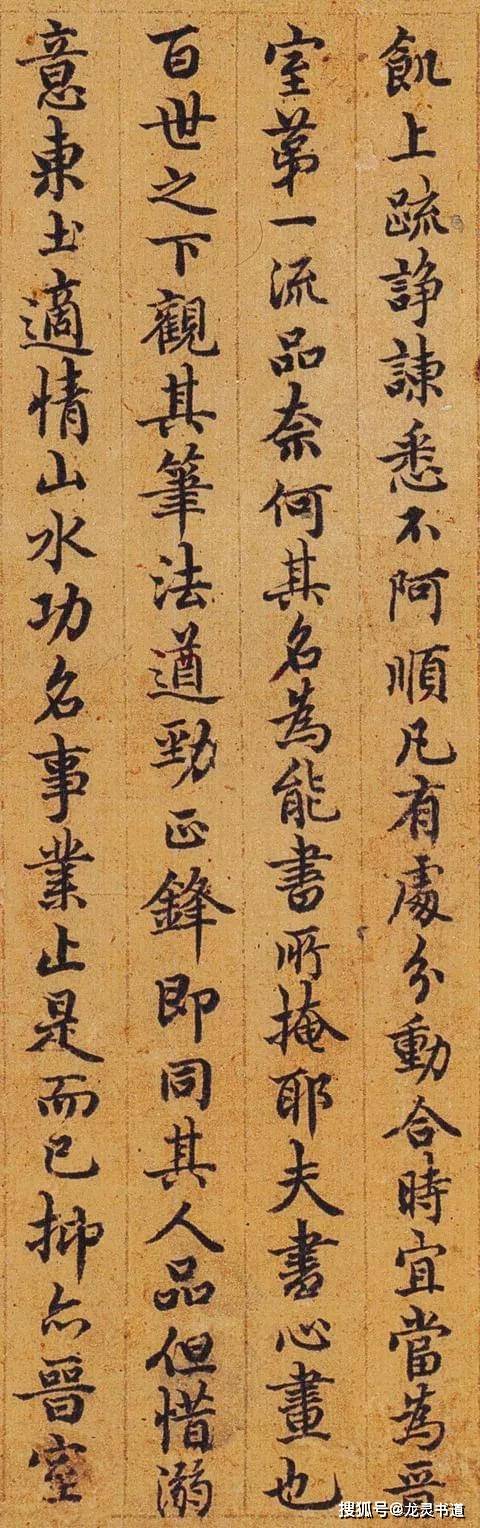 飢上疏諍諫悉不阿順凡有處分動合時宜當為晉
室苐一流品奈何其名為能書所掩耶夫書心畫也
百世之下觀其筆法遒勁正鋒即同其人品但惜溺
意東土適情山水功名事業止是而已抑亦晉室
搜狐号@龙灵书道